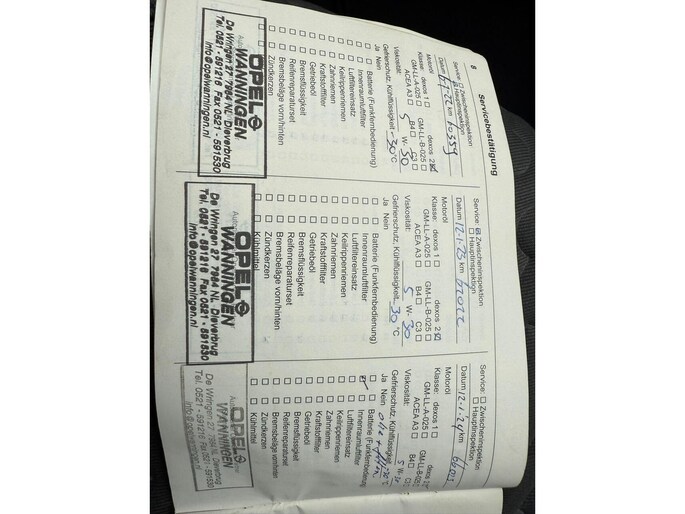 8
Servicebestätigung
Service: ☒ Zwischeninspektion
☐ Hauptinspektion
Datum km 60359
Motoröl
Klasse: dexos 1 ☐ dexos 2 ☒
GM-LL-A-025 ☐ GM-LL-B-025 ☐
ACEA A3 ☐ B4 ☐ C3 ☐
Viskosität: 5 W- 30
Gefrierschutz, Kühlflüssigkeit -30 °C
Ja Nein
☐ ☐ Batterie (Funkfernbedienung)
☐ ☐ Innenraumluftfilter
☐ ☐ Luftfiltereinsatz
☐ ☐ Keilrippenriemen
☐ ☐ Zahnriemen
☐ ☐ Kraftstofffilter
☐ ☐ Getriebeöl
☐ ☐ Bremsflüssigkeit
☐ ☐ Reifenreparaturset
☐ ☐ Bremsbeläge vorn/hinten
☐ ☐ Zündkerzen
OPEL
WANNINGEN
De Wringen 27 7964 NL Dieverbrug
Tel. 0521 - 591216 Fax 0521 - 591530
info@opelwanningen.nl
Service: ☒ Zwischeninspektion
☐ Hauptinspektion
Datum 12-1-23 km
Motoröl
Klasse: dexos 1 ☐ dexos 2 ☒
GM-LL-A-025 ☐ GM-LL-B-025 ☐
ACEA A3 ☐ B4 ☐ C3 ☐
Viskosität: 5 W- 30
Gefrierschutz, Kühlflüssigkeit -30 °C
Ja Nein
☐ ☐ Batterie (Funkfernbedienung)
☐ ☐ Innenraumluftfilter
☐ ☐ Luftfiltereinsatz
☐ ☐ Keilrippenriemen
☐ ☐ Zahnriemen
☐ ☐ Kraftstofffilter
☐ ☐ Getriebeöl
☐ ☐ Bremsflüssigkeit
☐ ☐ Reifenreparaturset
☐ ☐ Bremsbeläge vorn/hinten
☐ ☐ Zündkerzen
☐ ☐ Kühlmittel
OPEL
WANNINGEN
De Wringen 27 7964 NL Dieverbrug
Tel. 0521 - 591216 Fax 0521 - 591530
info@opelwanningen.nl
Service: ☐ Zwischeninspektion
☐ Hauptinspektion
Datum 12-1-24 km
Motoröl
Klasse: dexos 1 ☐ dexos 2
GM-LL-A-025 ☐ GM-LL-B-025 ☐
ACEA A3 ☐ B4 ☐
Viskosität: 5 W-
Gefrierschutz, Kühlflüssigkeit
Ja Nein
☐ ☐ Batterie (Funkfernbedienung)
☑ ☐ Innenraumluftfilter
☐ ☐ Luftfiltereinsatz
☐ ☐ Keilrippenriemen
☐ ☐ Zahnriemen
☐ ☐ Kraftstofffilter
☐ ☐ Getriebeöl
☐ ☐ Bremsflüssigkeit
☐ ☐ Reifenreparaturset
☐ ☐ Bremsbeläge vorn/hinten
☐ ☐ Zündkerzen
☐ ☐ Kühlmittel
OPEL
WANNINGEN
De Wringen 27 7964 NL Dieverbrug
Tel. 0521 - 591216 Fax 0521 - 591530
info@opelwanningen.nl